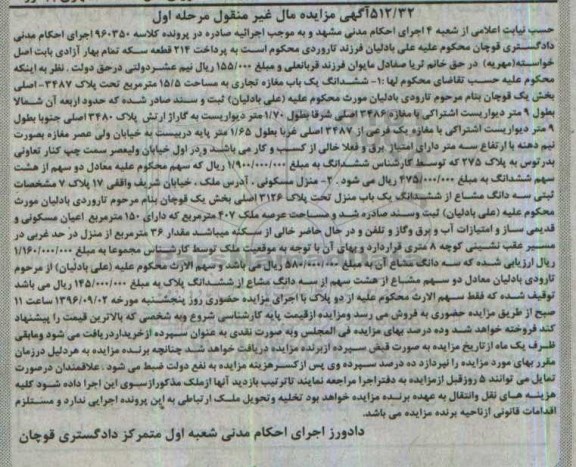 ۵۱۲/۳۲آگهی مزایده مال غیر منقول مرحله اول
حسب نیابت اعلامی از شعبه ۴ اجرای احکام مدنی مشهد و به موجب اجرائیه صادره در پرونده کلاسه ۹۶۰۳۵۰ اجرای احکام مدنی
دادگستری قوچان محکوم علیه علی بادلیان فرزند تاروردی محکوم است به پرداخت ۲۱۴ قطعه سکه تمام بهار آزادی بابت اصل
خواسته(مهریه) در حق خانم ثریا صفادل مایوان فرزند قربانعلی و مبلغ ۱۵۵/۰۰۰ ریال نیم عشردولتی درحق دولت . نظر به اینکه
محکوم علیه حسب تقاضای محکوم لها :۱- ششدانگ یک باب مغازه تجاری به مساحت ۱۵/۵ مترمربع تحت پلاک ۳۴۸۷- اصلی
بخش یک قوچان بنام مرحوم تارودی بادلیان مورث محکوم علیه (علی بادلیان) ثبت و سند صادر شده که حدود اربعه آن شمالا
بطول ۹ متر دیواریست اشتراکی با مغازه ۳۴۸۶ اصلی شرقا بطول ۱/۷۰ متر دیواریست به گاراژ ارتش پلاک ۳۴۸۰ اصلی جنوبا بطول
۹ متر دیواریست اشتراکی با مغازه یک فرعی از ۳۴۸۷ اصلی غربا بطول ۱/۶۵ متر پایه دربیست به خیابان ولی عصر مغازه بصورت
نیم دهنه با ارتفاع سه متر دارای امتیاز برق و فعلا خالی از کسب و کار می باشد و در اول خیابان ولیعصر سمت چپ کنار تعاونی
بدر توس به پلاک ۲۷۵ که توسط کارشناس ششدانگ به مبلغ ۱/۹۰۰/۰۰۰/۰۰۰ ریال که سهم محکوم علیه معادل دو سهم از هشت
سهم ششدانگ به مبلغ ۴۷۵/۰۰۰/۰۰۰ ریال می شود . ۲- منزل مسکونی ، آدرس ملک ، خیابان شریف واقفی ۱۷ پلاک ۷ مشخصات
ثبتی سه دانگ مشاع از ششدانگ یک باب منزل تحت پلاک ۳۱۲۶ اصلی بخش یک قوچان بنام مرحوم تاروردی بادلیان مورث
محکوم علیه (علی بادلیان) ثبت وسند صادره شد و مساحت عرصه ملک ۴۰۷ مترمربع که دارای ۱۵۰ مترمربع اعیان مسکونی و
قدیمی ساز و امتیازات آب و برق وگاز و تلفن و در حال حاضر خالی از سکنه میباشد مقدار ۳۶ مترمربع از منزل در حد غربی در
مسیر عقب نشینی کوچه ۸ متری قراردارد و بهای آن با توجه به موقعیت ملک توسط کارشناس مجموعا به مبلغ ۱/۱۶۰/۰۰۰/۰۰۰
ریال ارزیابی شده که سه دانگ مشاع آن به مبلغ ۵۸۰/۰۰۰/۰۰۰ ریال می باشد و سهم الارث محکوم علیه (علی بادلیان) از مرحوم
تارودی بادلیان معادل دو سهم مشاع از هشت سهم از سه دانگ مشاع از ششدانگ پلاک به مبلغ ۱۴۵/۰۰۰/۰۰۰ ریال می باشد
توقیف شده که فقط سهم الارث محکوم علیه از دو پلاک با اجرای مزایده حضوری روز پنجشنبه مورخه ۱۳۹۶/۰۹/۰۲ ساعت ۱۱
صبح از طریق مزایده حضوری به فروش می رسد ومزایده ازقیمت پایه کارشناسی شروع وبه شخصی که بالاترین قیمت را پیشنهاد
کند فروخته خواهد شد وده درصد بهای مزایده فی المجلس وبه صورت نقدی به عنوان سپرده ازخریداردریافت می شود ومابقی
ظرف یک ماه ازتاریخ مزایده به صورت قبض سپرده ازبرنده مزایده دریافت خواهد شد چنانچه برنده مزایده به هردلیل درزمان
مقرر بهای مورد مزایده را نپردازد ده درصد سپرده وی پس از کسرهزینه مزایده به نفع دولت ضبط می شود . علاقمندان درصورت
تمایل می توانند ۵ روزقبل ازمزایده به دفتراجرا مراجعه نمایند تاترتیب بازدید آنها ازملک مذکورازسوی این اجرا داده شود کلیه
هزینه های نقل وانتقال به عهده برنده مزایده خواهد بود تخلیه وتحویل ملک ارتباطی به این پرونده اجرایی ندارد و مستلزم
اقدامات قانونی ازناحیه برنده مزایده می باشد.
دادورز اجرای احکام مدنی شعبه اول متمرکز دادگستری قوچان